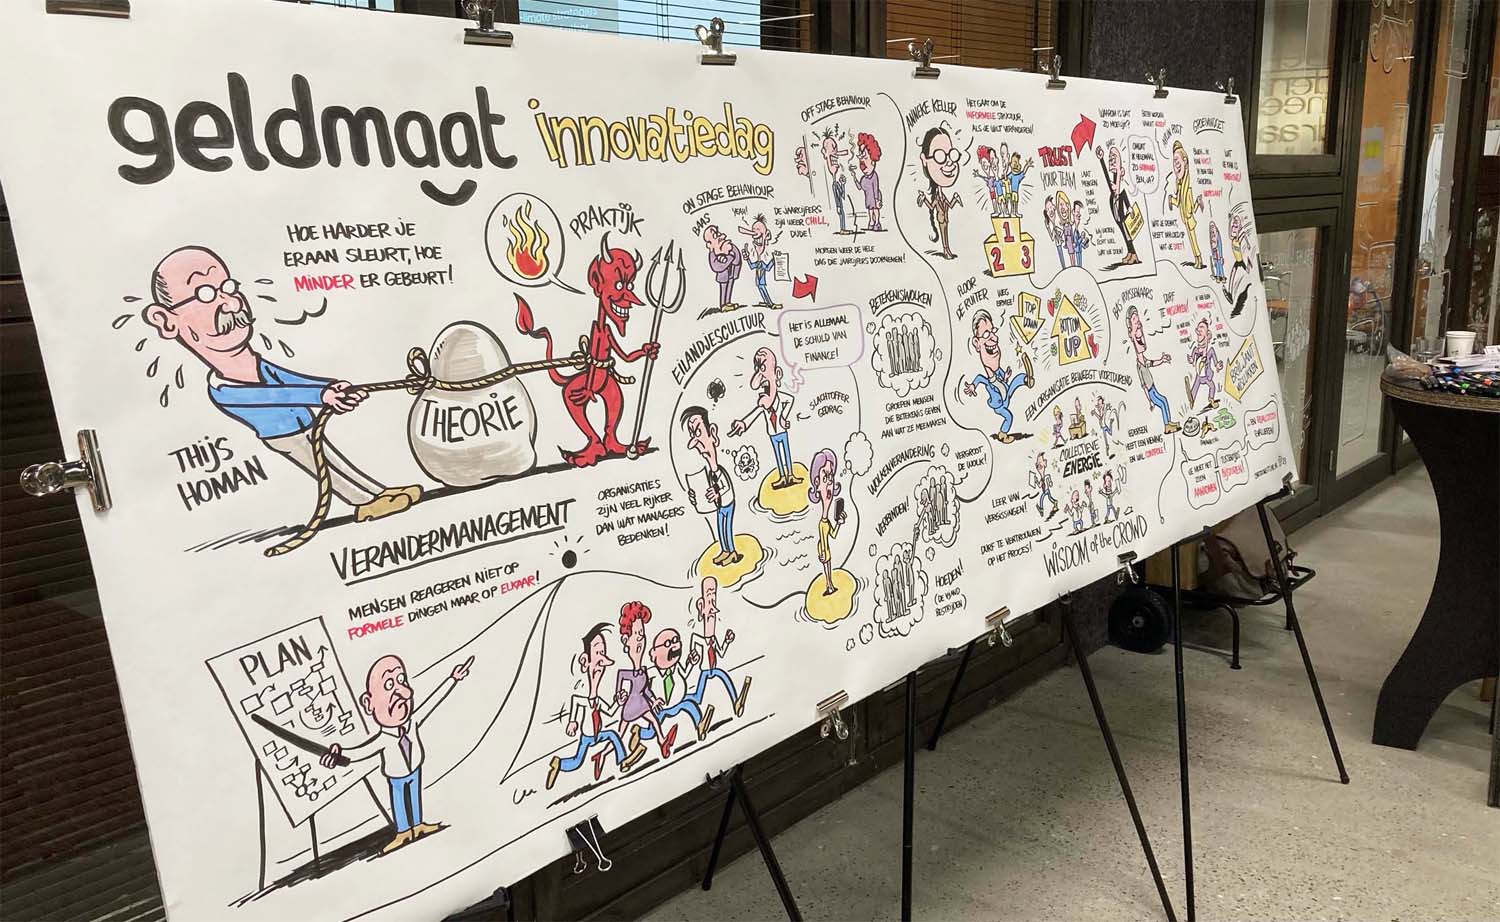 geldmaat innovatiedag
HOE HARDER JE
ERAAN SLEURT, HOE
MINDER ER GEBEURT!
PRAKTIJK
THEORIE
THIJS
HOMAN
VERANDERMANAGEMENT
MENSEN REAGEREN NIET OP
FORMELE DINGEN MAAR OP ELKAAR!
PLAN
ORGANISATIES
ZIJN VEEL RIJKER
DAN WAT MANAGERS
BEDENKEN!
ON STAGE BEHAVIOUR
BAAS
YEAH!
DE JAARCIJFERS
ZIJN WEER CHILL,
DUDE!
OFF STAGE BEHAVIOUR
MORGEN WEER DE HELE
DAG DIE JAARCIJFERS DOORNEMEN!
EILANDJESCULTUUR
HET IS ALLEMAAL
DE SCHULD VAN
FINANCE!
SLACHTOFFER
GEDRAG
BETEKENISWOLKEN
GROEPEN MENSEN
DIE BETEKENIS GEVEN
AAN WAT ZE MEEMAKEN
WOLKENVERANDERING
VERGROOT
DE WOLK!
VERBINDEN!
HOEDEN!
(DE VIJAND
BESTRIJDEN)
ANNEKE KELLER
HET GAAT OM DE
INFORMELE STRUCTUUR,
ALS JE WILT VERANDEREN!
1
2
3
TRUST
YOUR TEAM
LAAT
MENSEN
HUN
DING
DOEN!
WAAROM IS DAT
ZO MOEILIJK?
OMDAT
IK HELEMAAL
BEN, JA?
WAT JE DENKT,
HEEFT INVLOED OP
WAT JE DOET!
FLOOR
DE RUITER
WEG
ERMEE!
TOP
DOWN
BOTTOM
UP
EEN ORGANISATIE BEWEEGT VOORTDUREND
COLLECTIEVE
ENERGIE
LEER VAN
VERGISSINGEN!
DURF TE VERTROUWEN
OP HET PROCES!
WISDOM of the CROWD
IEDEREEN
HEEFT EEN MENING
EN WIL CONTROLE!
DURF
TE
BRILJANT
MISLUKKEN
WE MOET HET
ZIEN
AANKOMEN
TUSSENTIJDS
BIJSTUREN!